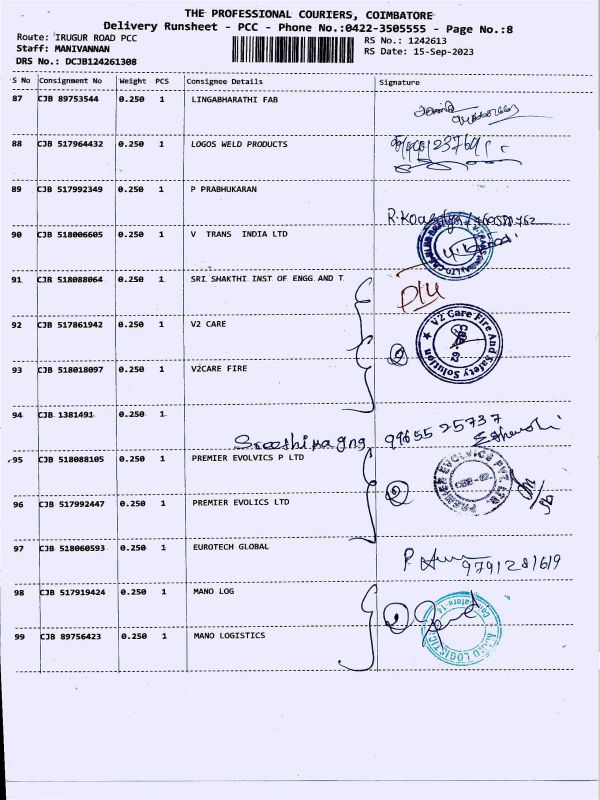 THE PROFESSIONAL COURIERS, COIMBATORE
Delivery Runsheet - PCC - Phone No.:0422-3505555 - Page No.:8
Route: IRUGUR ROAD PCC
RS No.: 1242613
Staff: MANIVANNAN
RS Date: 15-Sep-2023
DRS No.: DCJB124261308
S No Consignment No Weight PCS Consignee Details Signature
87 CJB 89753544 0.250 1 LINGABHARATHI FAB
88 CJB 517964432 0.250 1 LOGOS WELD PRODUCTS
89 CJB 517992349 0.250 1 P PRABHUKARAN
90 CJB 518006605 0.250 1 V TRANS INDIA LTD
91 CJB 518088064 0.250 1 SRI SHAKTHI INST OF ENGG AND T
D/U
92 CJB 517861942 0.250 1 V2 CARE
V2 Care Fire And Safety Solution
CBE-62
93 CJB 518018097 0.250 1 V2CARE FIRE
2
94 CJB 1381491 0.250 1
99655 25737
95 CJB 518088105 0.250 1 PREMIER EVOLVICS P LTD
PREMIER EVOLVICS PVT. LTD
96 CJB 517992447 0.250 1 PREMIER EVOLICS LTD
2
97 CJB 518060593 0.250 1 EUROTECH GLOBAL
9791281619
98 CJB 517919424 0.250 1 MANO LOG
99 CJB 89756423 0.250 1 MANO LOGISTICS
2
MANO LOGISTICS